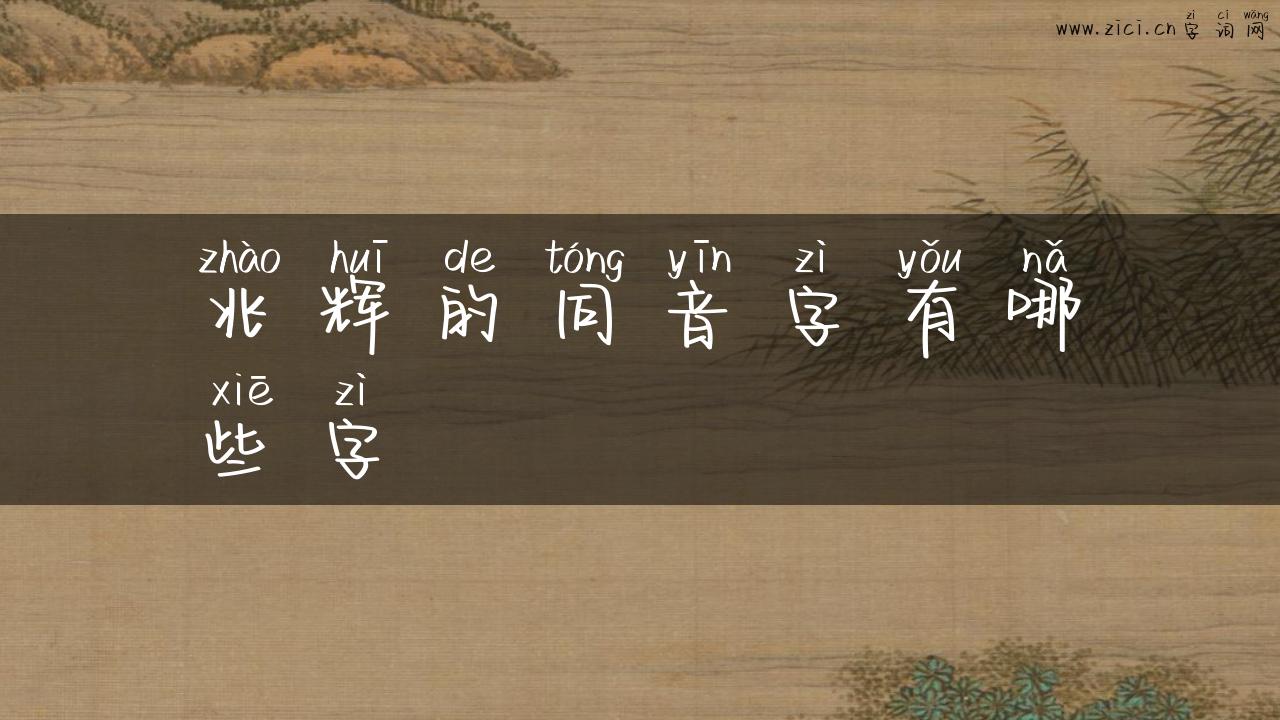 zì cí wǎng
www.zici.cn字词网
zhào huī de tóng yīn zì yǒu nǎ
兆辉的同音字有哪
xiē zì
些字